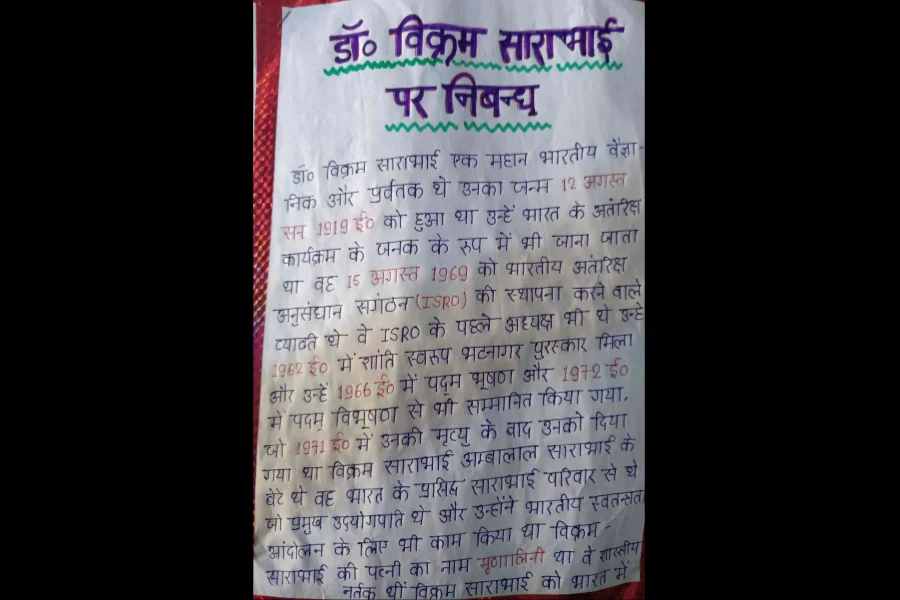 डॉ० विक्रम साराभाई
पर निबन्ध
डॉ० विक्रम साराभाई एक महान भारतीय वैज्ञा-
निक और पुर्वतक थे उनका जन्म 12 अगस्त
सन 1919 ई० को हुआ था उन्हें भारत के अतंरिक्ष
कार्यक्रम के जनक के रुप में भी जाना जाता
था वह 15 अगस्त 1969 को भारतीय अतंरिक्ष
अनुसंधान सगंठन (ISRO) की स्थापना करने वाले
व्यक्ती थे वे ISRO के पहले अध्यक्ष भी थे उन्हे
1962 ई० में शांति स्वरुप भटनागर पुरस्कार मिला
और उन्हें 1966 ई० में पद्म भूषण और 1972 ई०
में पदम् विभूषण से भी सम्मानित किया गया.
जो 1971 ई० में उनकी मृत्यु के बाद उनको दिया
गया था विक्रम साराभाई अम्बालाल साराभाई के
बेटे थे वह भारत के प्रसिद्ध साराभाई परिवार से थे
जो प्रमुख उदयोगपति थे और उन्होंने भारतीय स्वतन्त्रता
आंदोलन के लिए भी काम किया था विक्रम -
साराभाई की पत्नी का नाम मृणालिनी था वे शास्त्रीय
नर्तक थीं विक्रम साराभाई को भारत में